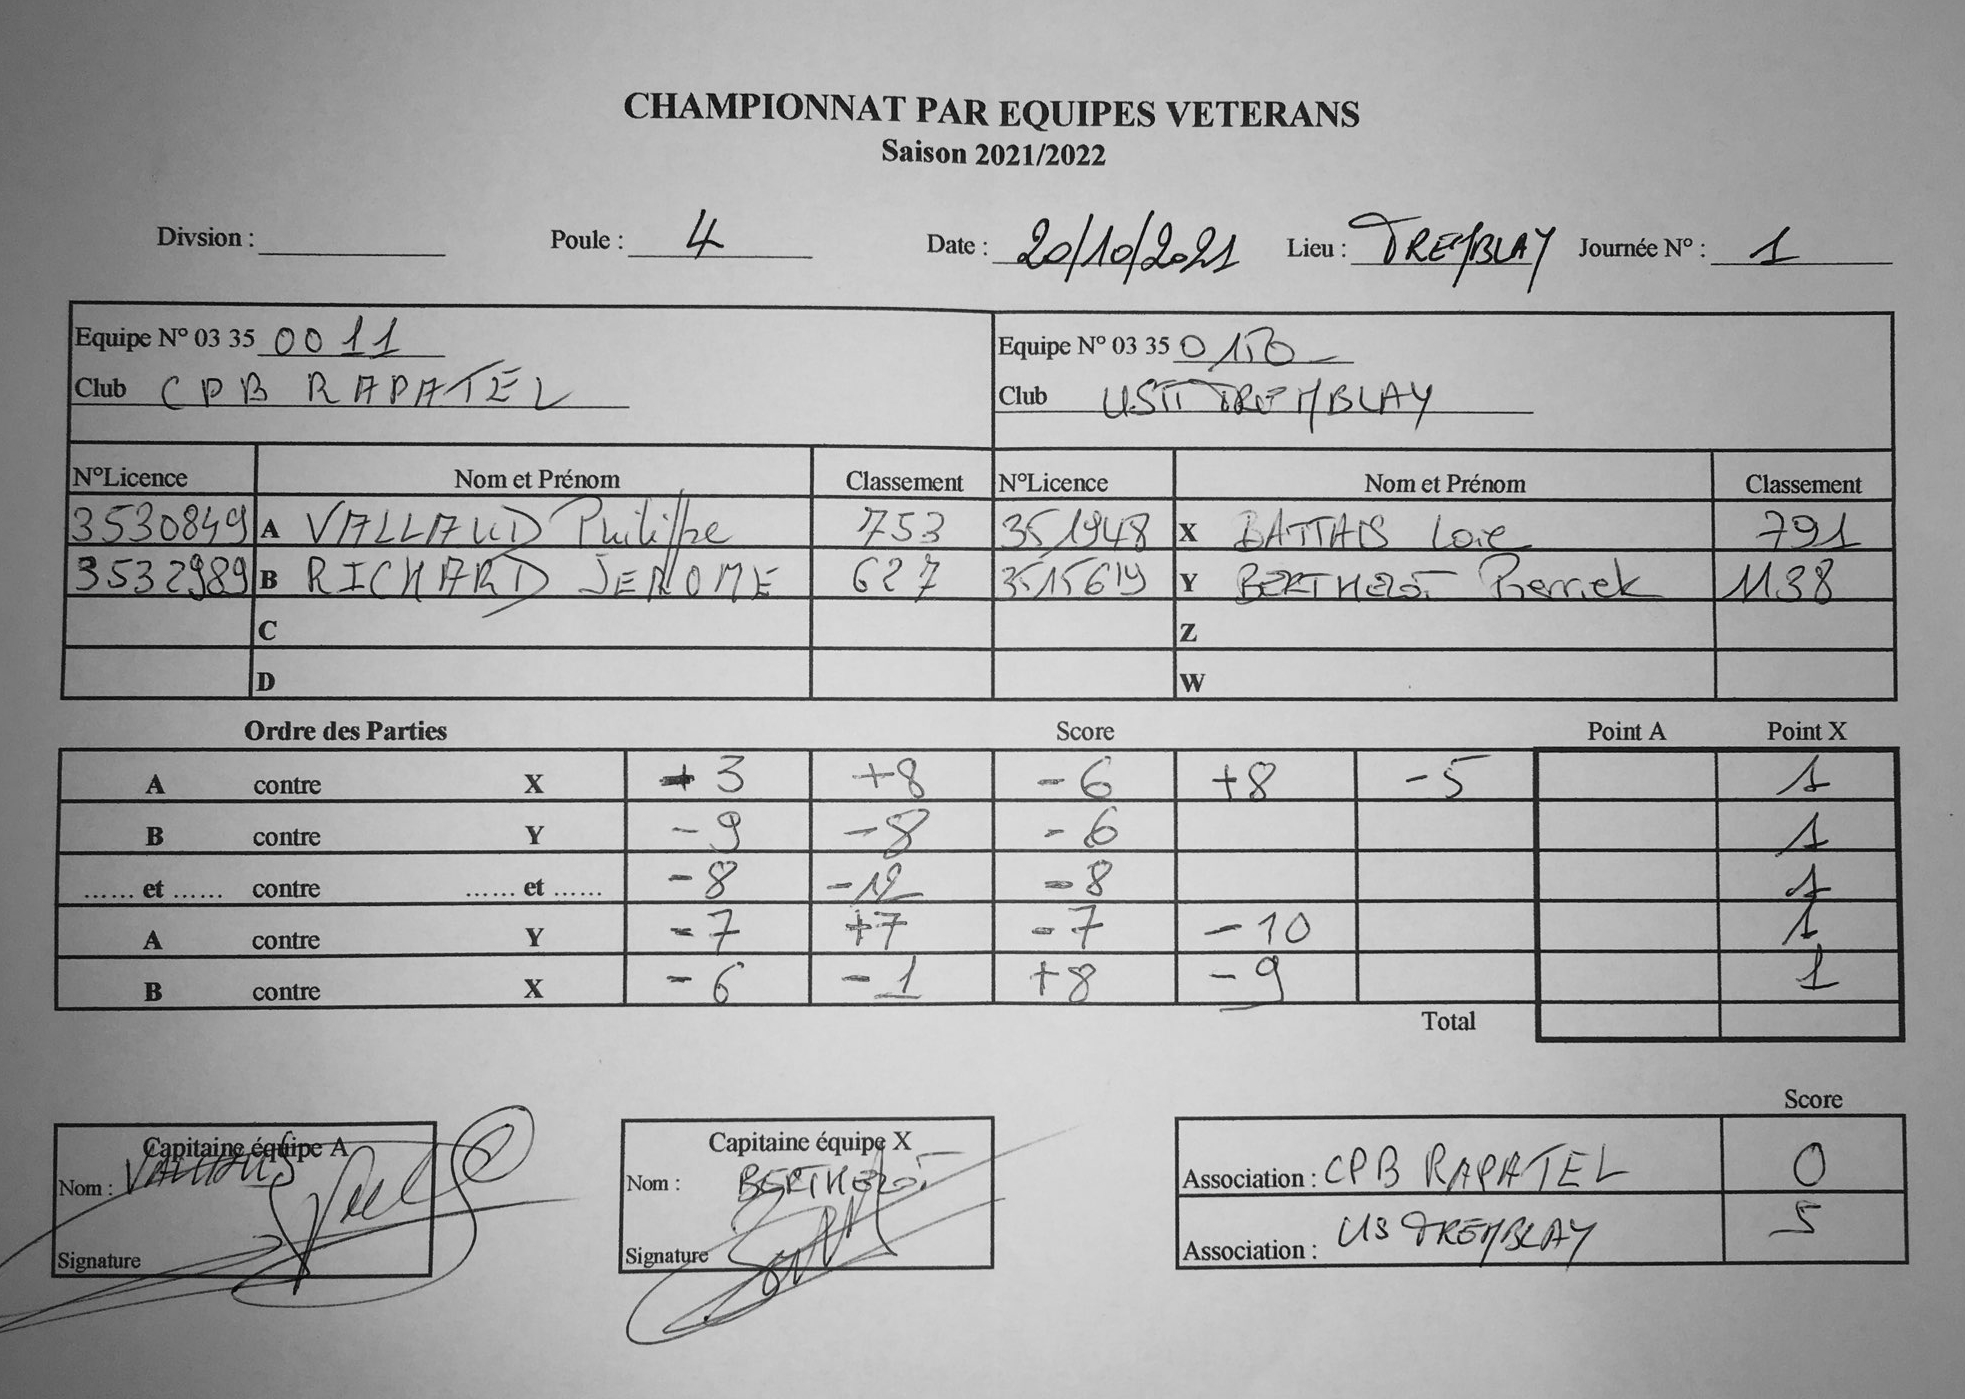 CHAMPIONNAT PAR EQUIPES VETERANS
Saison 2021/2022
Divsion : Poule : 4 Date : 20/10/2021 Lieu : TREMBLAY Journée N° : 1
Equipe N° 03 35 0011 Equipe N° 03 35 0150
Club CPB RAPATEL Club USTT TREMBLAY
N°Licence Nom et Prénom Classement N°Licence Nom et Prénom Classement
3530849 A VALLAUD Philippe 753 351948 X BATTAIS Loic 791
3532989 B RICHARD JEROME 627 3515619 Y BERTHELOT Pierrick 1138
C Z
D W
Ordre des Parties Score Point A Point X
A contre X + 3 +8 - 6 +8 - 5 1
B contre Y - 9 - 8 - 6 1
...... et ...... contre ...... et ...... - 8 - 12 - 8 1
A contre Y - 7 +7 - 7 - 10 1
B contre X - 6 - 1 +8 - 9 1
Total
Score
Capitaine équipe A Capitaine équipe X
Nom : Nom : BERTHELOT Association : CPB RAPATEL 0
Signature Signature Association : US TREMBLAY 5